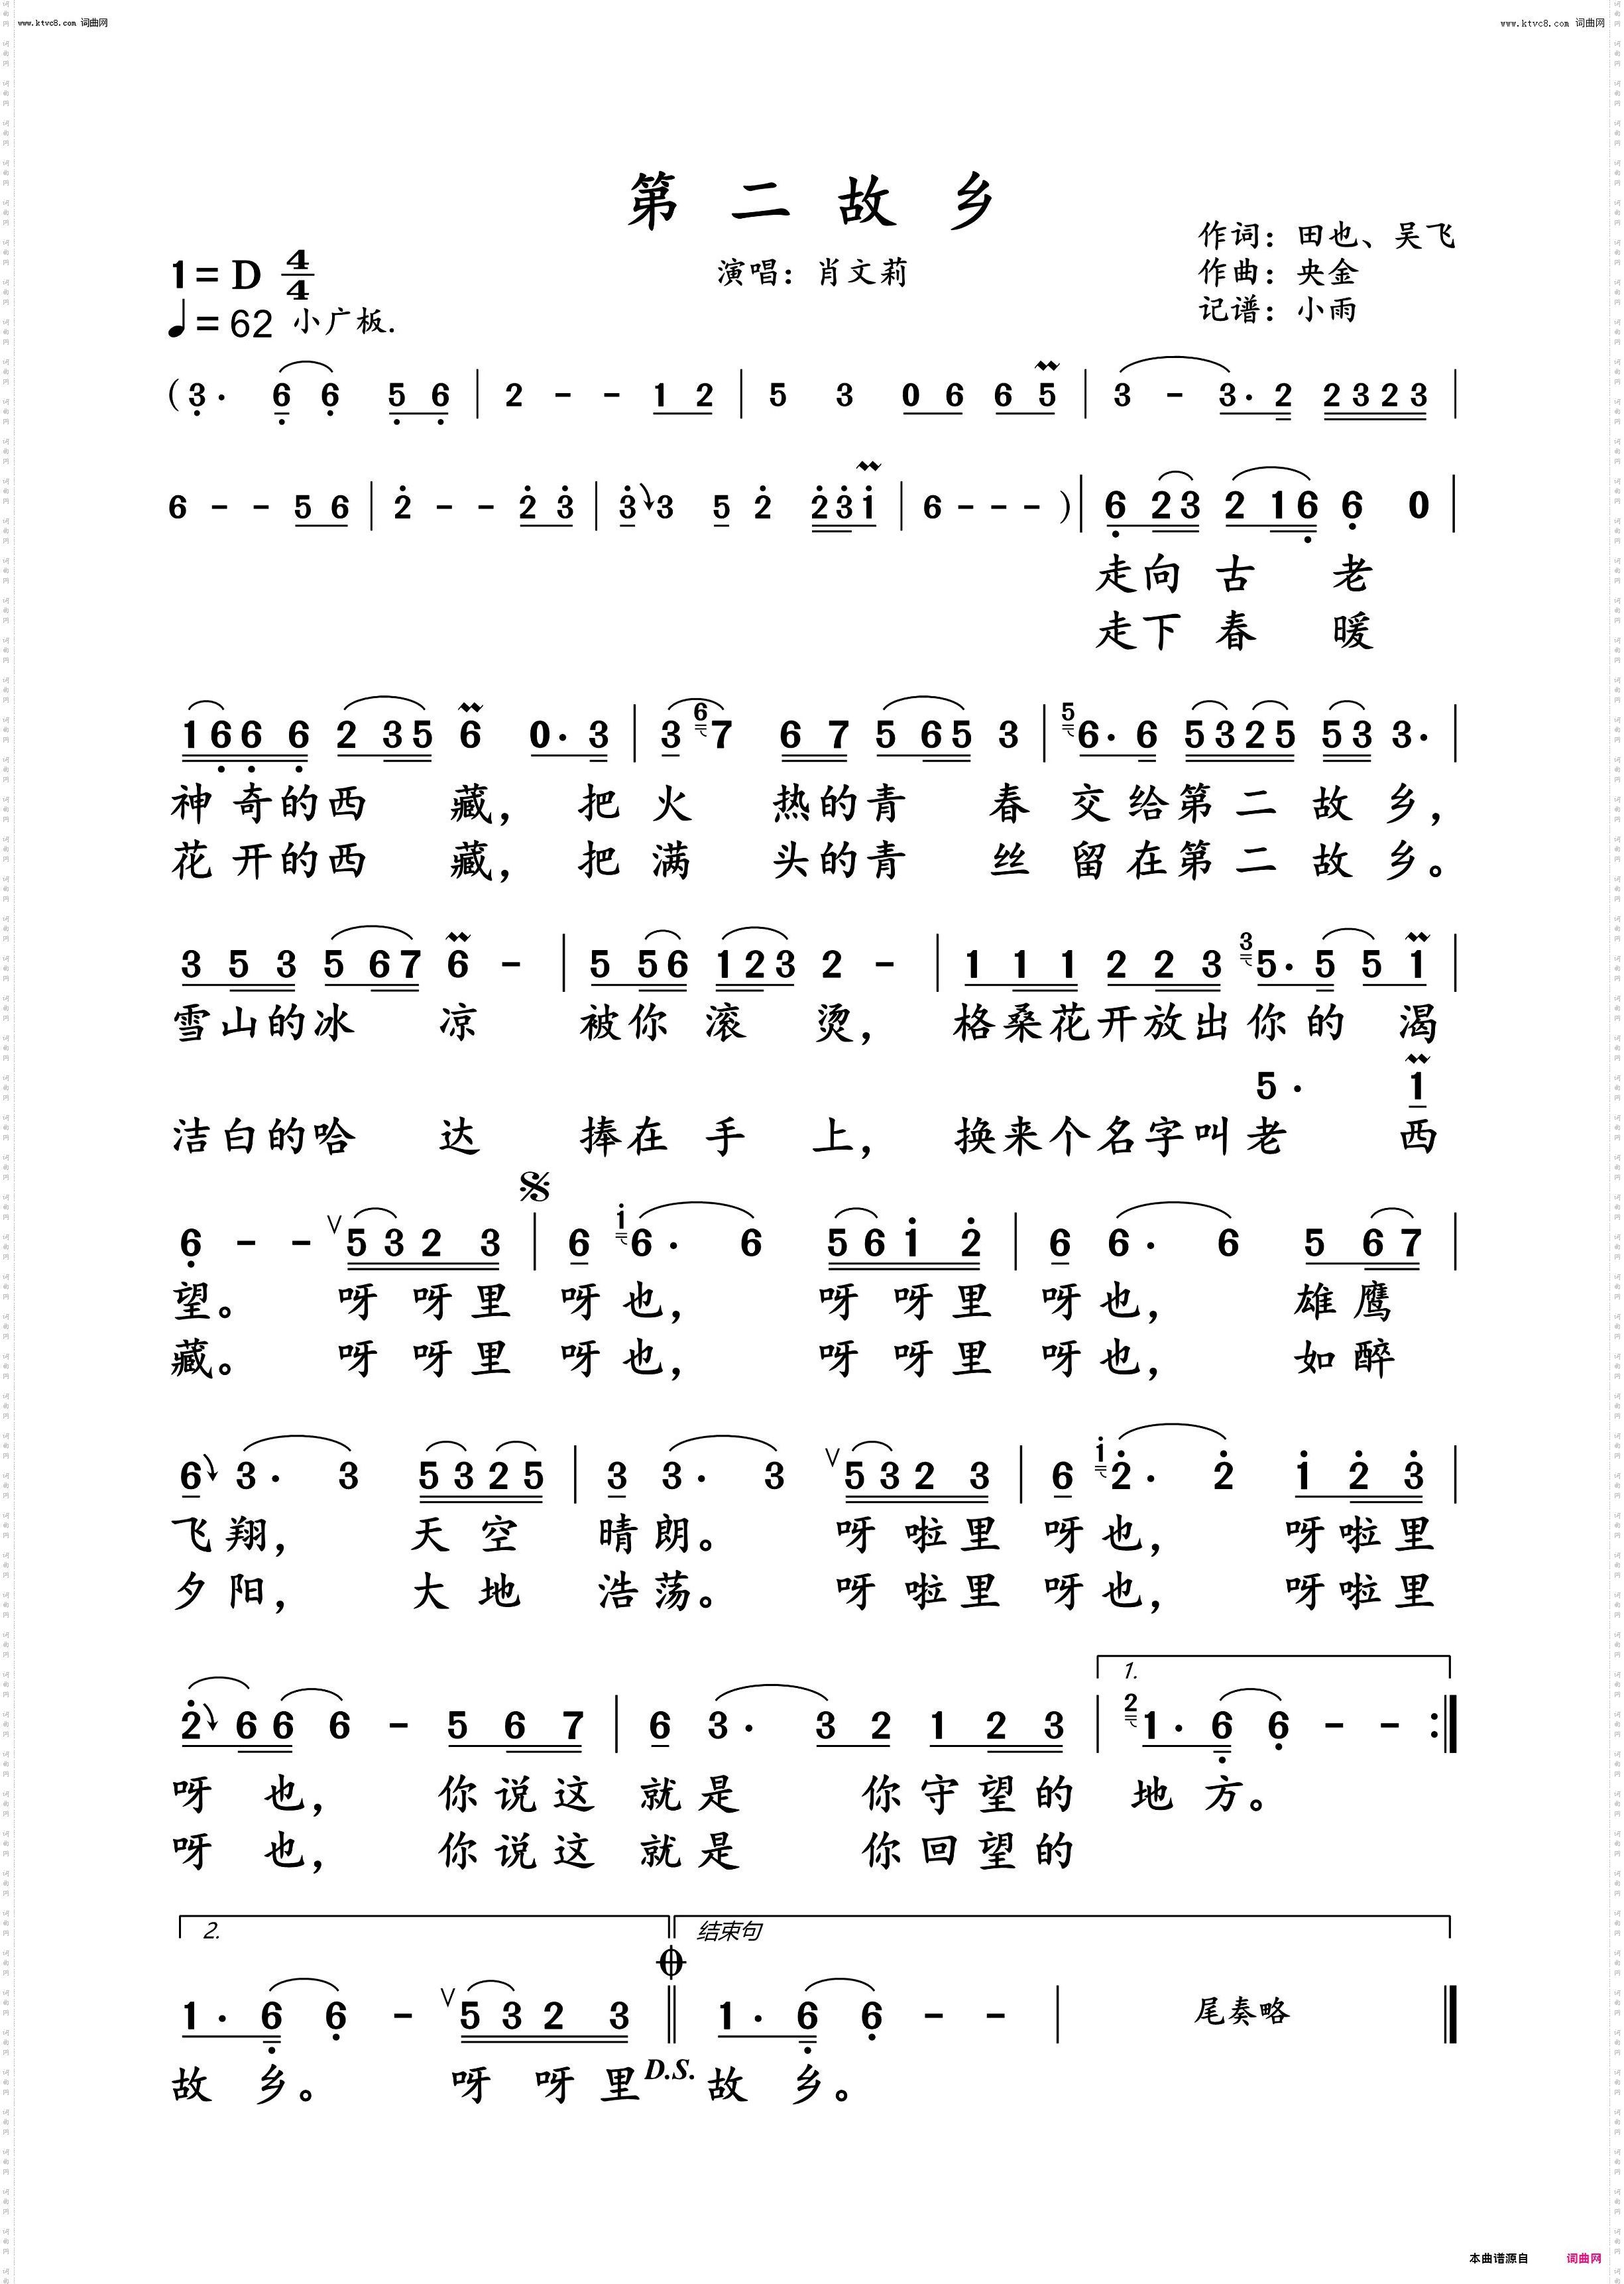 www.ktvc8.com 词曲网 www.ktvc8.com 词曲网
第 二 故 乡
作词：田也、吴飞
1= D 4/4 演唱：肖文莉 作曲：央金
♩= 62 小广板. 记谱：小雨
( 3· 6 6 5 6 | 2 - - 1 2 | 5 3 0 6 6 5 | 3 - 3· 2 2 3 2 3 |
6 - - 5 6 | 2 - - 2 3 | 3 3 5 2 2 3 1 | 6 - - - ) | 6 2 3 2 1 6 6 0 |
走向 古 老
走下 春 暖
1 6 6 6 2 3 5 6 0· 3 | 3 6 7 6 7 5 6 5 3 | 5 6· 6 5 3 2 5 5 3 3· |
神 奇的西 藏， 把 火 热的青 春 交 给第 二 故 乡，
花 开的西 藏， 把 满 头的青 丝 留 在第 二 故 乡。
3 5 3 5 6 7 6 - | 5 5 6 1 2 3 2 - | 1 1 1 2 2 3 3 5· 5 5 1 |
雪山的冰 凉 被你 滚 烫， 格桑花开放出 你 的 渴
5· 1
洁白的哈 达 捧在 手 上， 换来个名字叫 老 西
6 - - 5 3 2 3 | 6 1 6· 6 5 6 1 2 | 6 6· 6 5 6 7 |
望。 呀 呀里 呀也， 呀 呀里 呀也， 雄 鹰
藏。 呀 呀里 呀也， 呀 呀里 呀也， 如 醉
6 3· 3 5 3 2 5 | 3 3· 3 5 3 2 3 | 6 1 2· 2 1 2 3 |
飞翔， 天 空 晴朗。 呀 啦里 呀也， 呀啦里
夕阳， 大 地 浩荡。 呀 啦里 呀也， 呀啦里
1.
2 6 6 6 - 5 6 7 | 6 3· 3 2 1 2 3 | 2 1· 6 6 - - :|
呀 也， 你说这 就是 你守望的 地 方。
呀 也， 你说这 就是 你回望的
2. 结束句
1· 6 6 - 5 3 2 3 || 1· 6 6 - - | 尾奏略
故 乡。 呀 呀 里 D.S. 故 乡。
本曲谱源自 词曲网